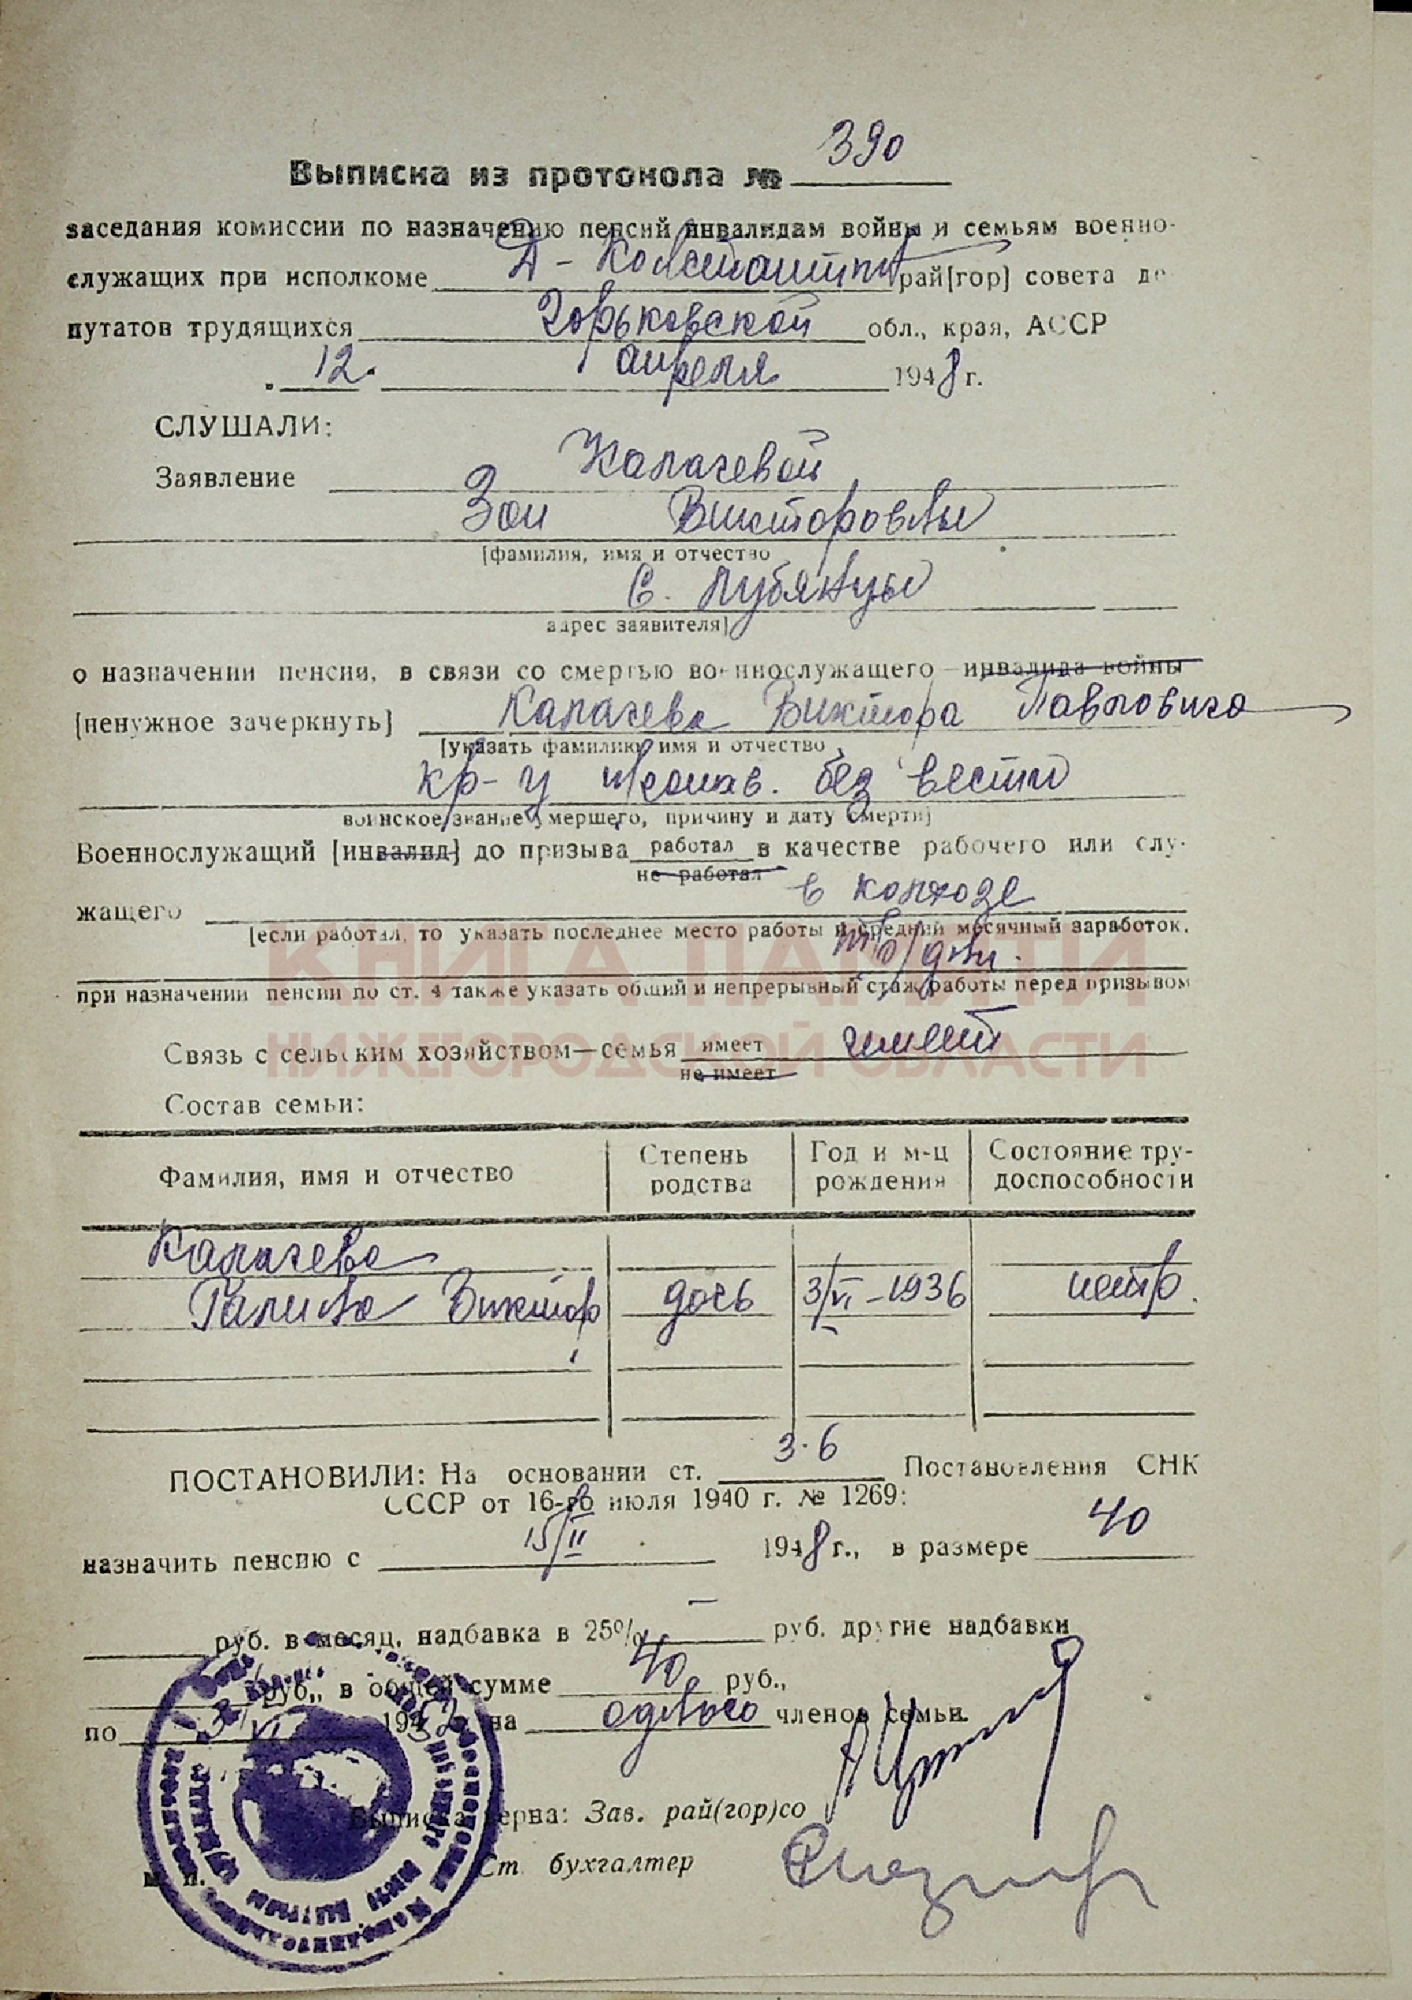 Выписка из протокола № 390
заседания комиссии по назначению пенсий инвалидам войны и семьям военно-
служащих при исполкоме Д-Константин рай[гор] совета де
путатов трудящихся Горьковской обл., края, АССР
12. апреля 1948 г.
СЛУШАЛИ:
Заявление Калачевой
Зои Викторовны
[фамилия, имя и отчество
с. Лубянцы
адрес заявителя]
о назначении пенсии, в связи со смертью военнослужащего—инвалида войны
[ненужное зачеркнуть] Калачева Виктора Павловича
[указать фамилию имя и отчество
кр-ц пропав. без вести
воинское звание умершего, причину и дату смерти]
Военнослужащий [инвалид] до призыва работал в качестве рабочего или слу-
не работал
жащего в колхозе
[если работал, то указать последнее место работы и средний месячный заработок.
тр/дни.
при назначении пенсии по ст. 4 также указать общий и непрерывный стаж работы перед призывом
КНИГА ПАМЯТИ
НИЖЕГОРОДСКОЙ ОБЛАСТИ
Связь с сельским хозяйством—семья имеет имеет
не имеет
Состав семьи:
Фамилия, имя и отчество Степень родства Год и м-ц рождения Состояние тру-доспособности
Калачева
Галина Виктор дочь 3/VI-1936 нетр.
ПОСТАНОВИЛИ: На основании ст. 3.6 Постановления СНК
СССР от 16-го июля 1940 г. № 1269:
назначить пенсию с 15/II 1948 г., в размере 40
руб. в месяц, надбавка в 25% — руб. другие надбавки
руб., в общей сумме 40 руб.,
по 3/VI 1952 на одного членов семьи.
Выписка верна: Зав. рай(гор)со
м. п. Ст бухгалтер